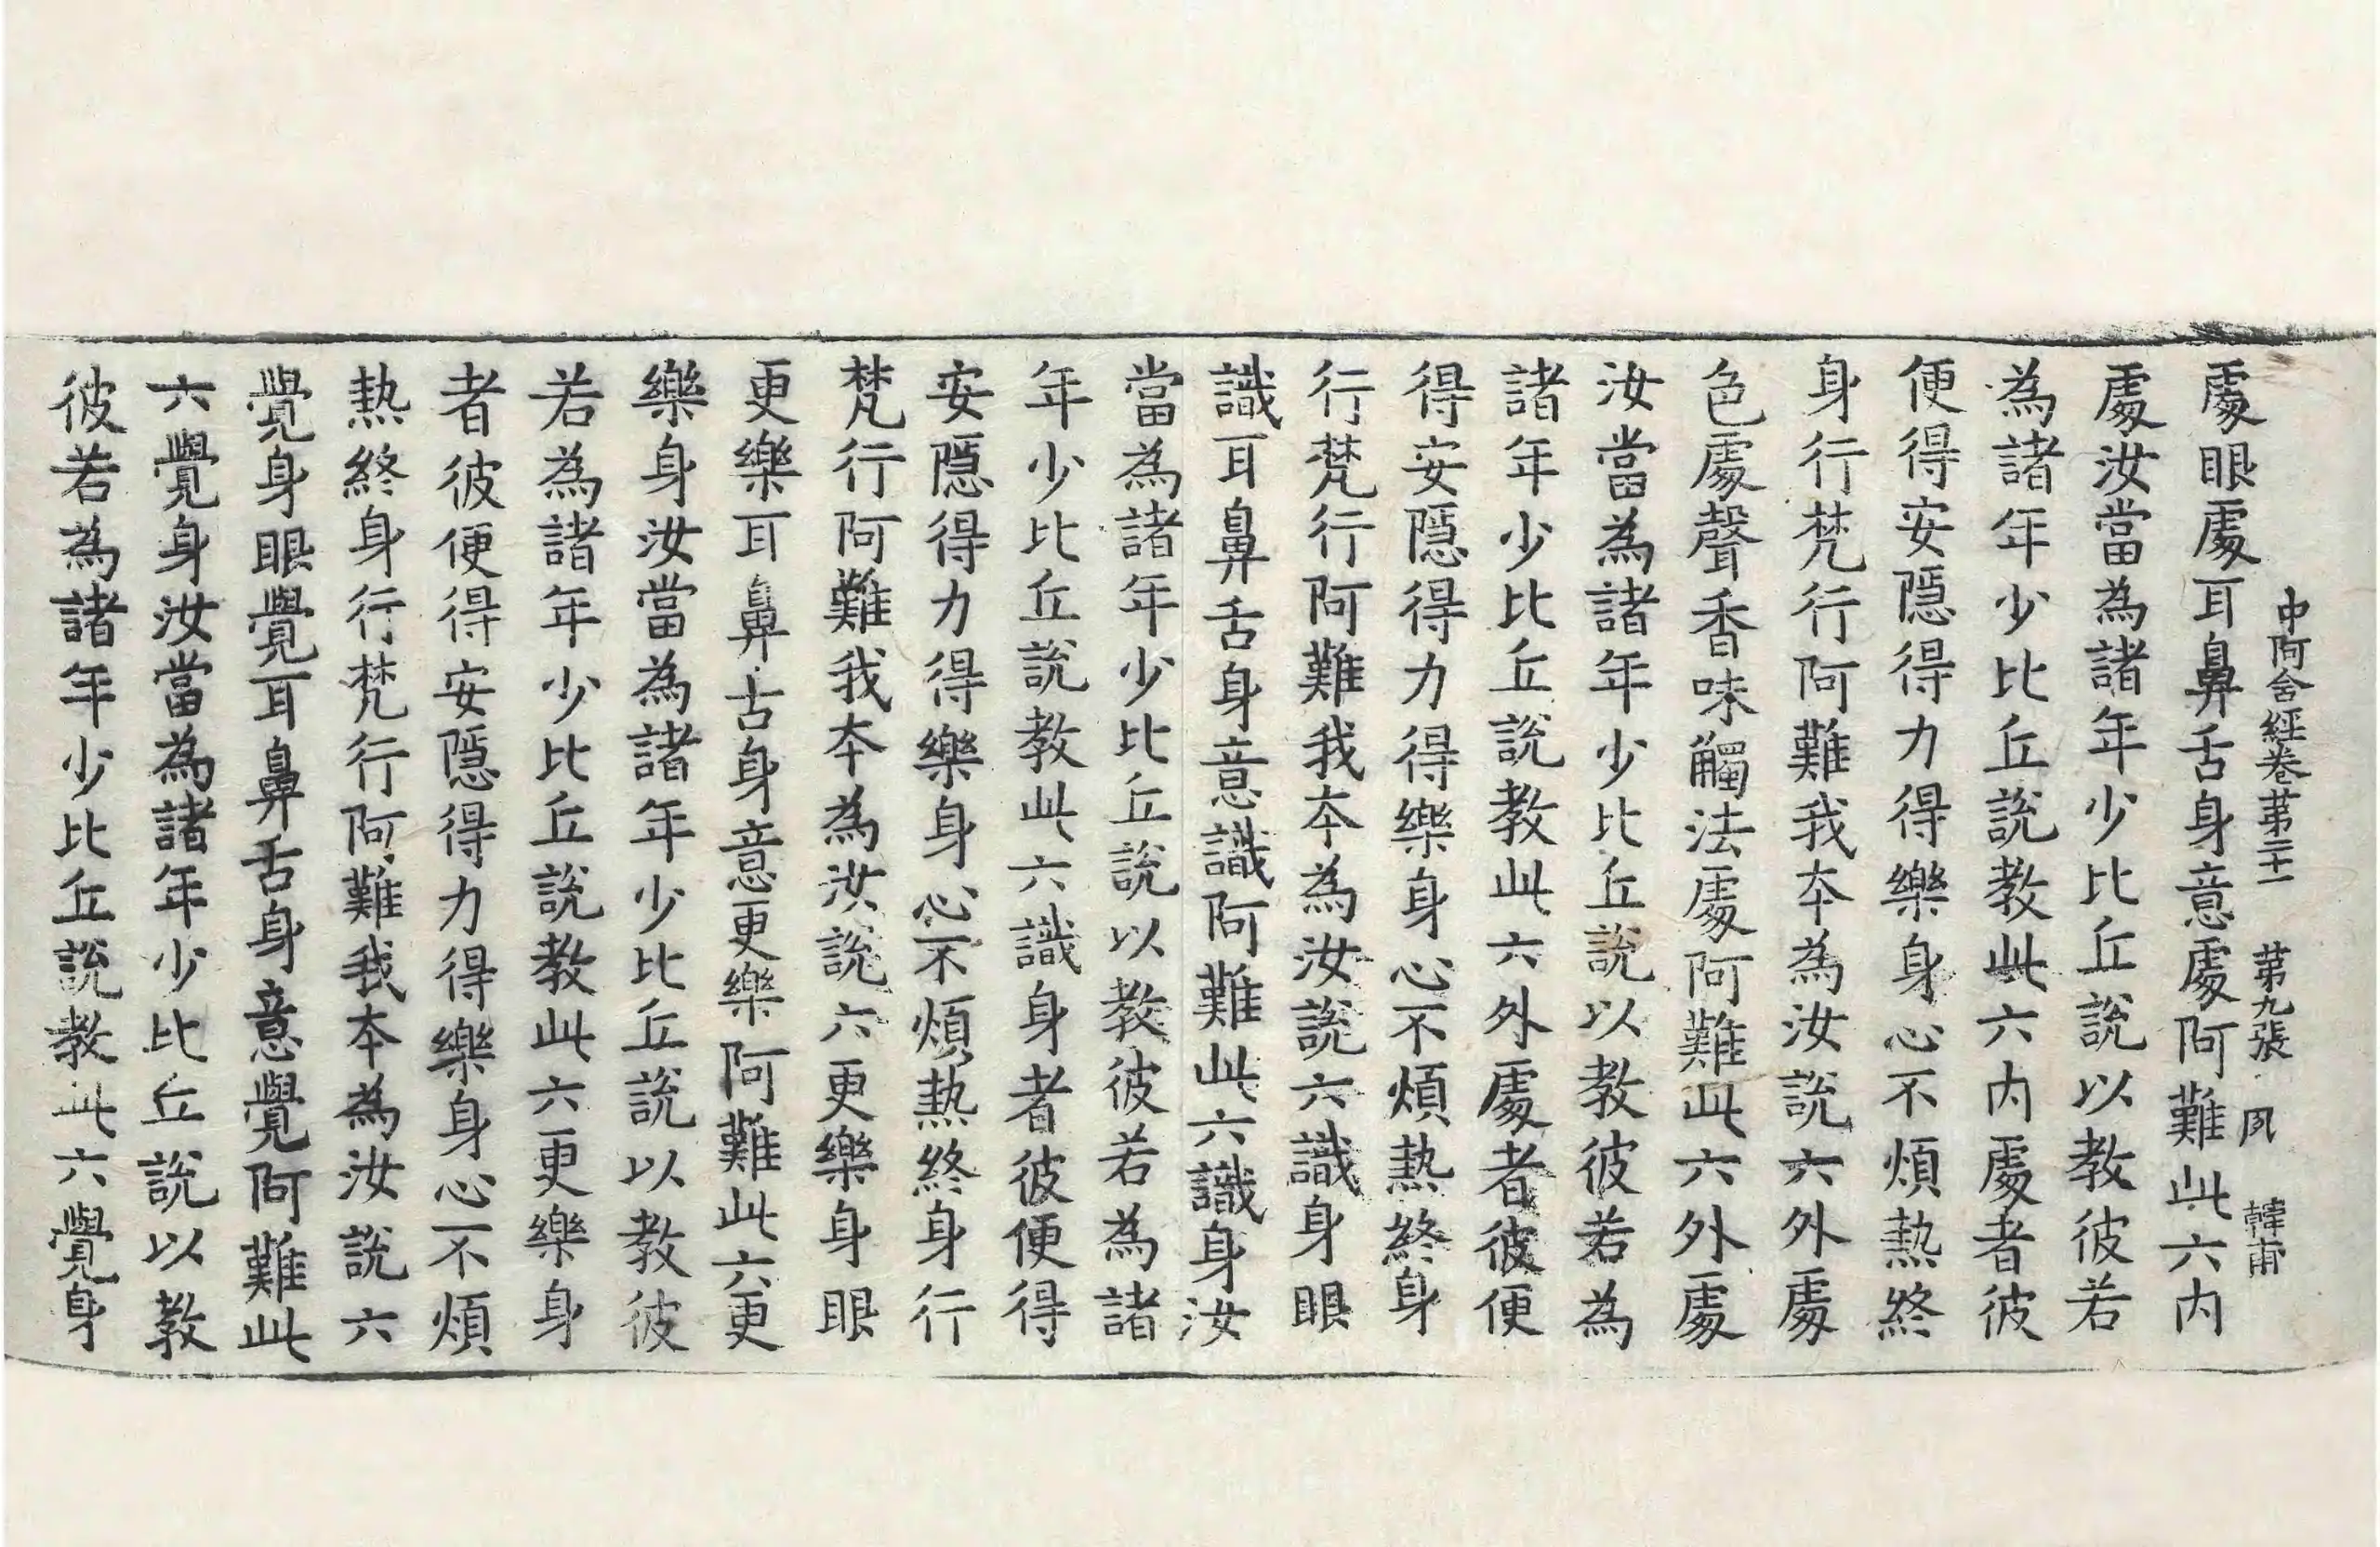 中阿含經卷苐二十一 苐九張 夙 韓甫
處眼處耳鼻舌身意處阿難此六內
處汝當為諸年少比丘說以教彼若
為諸年少比丘說教此六內處者彼
便得安隱得力得樂身心不煩熱終
身行梵行阿難我本為汝說六外處
色處聲香味觸法處阿難此六外處
汝當為諸年少比丘說以教彼若為
諸年少比丘說教此六外處者彼便
得安隱得力得樂身心不煩熱終身
行梵行阿難我本為汝說六識身眼
識耳鼻舌身意識阿難此六識身汝
當為諸年少比丘說以教彼若為諸
年少比丘說教此六識身者彼便得
安隱得力得樂身心不煩熱終身行
梵行阿難我本為汝說六更樂身眼
更樂耳鼻舌身意更樂阿難此六更
樂身汝當為諸年少比丘說以教彼
若為諸年少比丘說教此六更樂身
者彼便得安隱得力得樂身心不煩
熱終身行梵行阿難我本為汝說六
覺身眼覺耳鼻舌身意覺阿難此
六覺身汝當為諸年少比丘說以教
彼若為諸年少比丘說教此六覺身